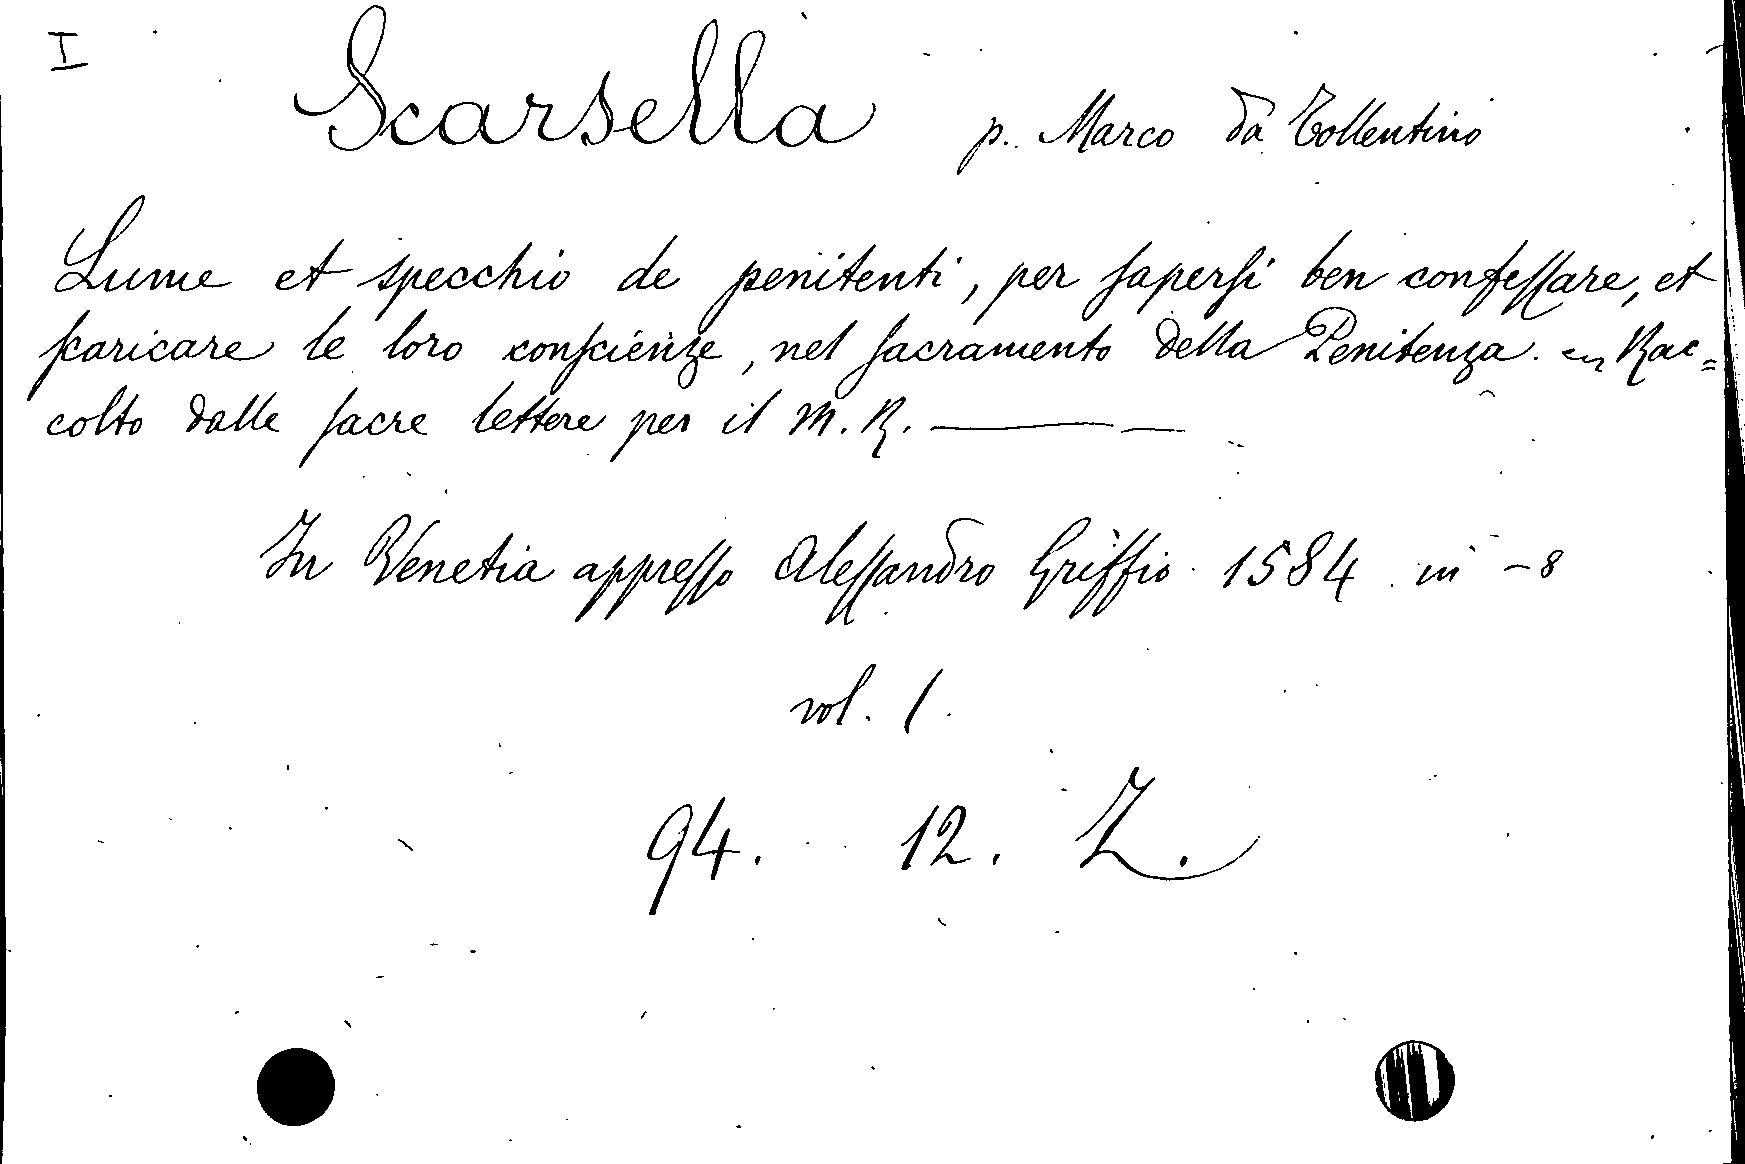 I
Scarsella p. Marco da Tollentino
Lume et specchio de penitenti, per sapersi ben confessare, et
scaricare le loro conscienze, nel sacramento della Penitenza. Rac=
colto dalle sacre lettere per il M. R. ——— —
In Venetia appresso Alessandro Griffio 1584 in -8
vol. 1.
94. 12. Z.